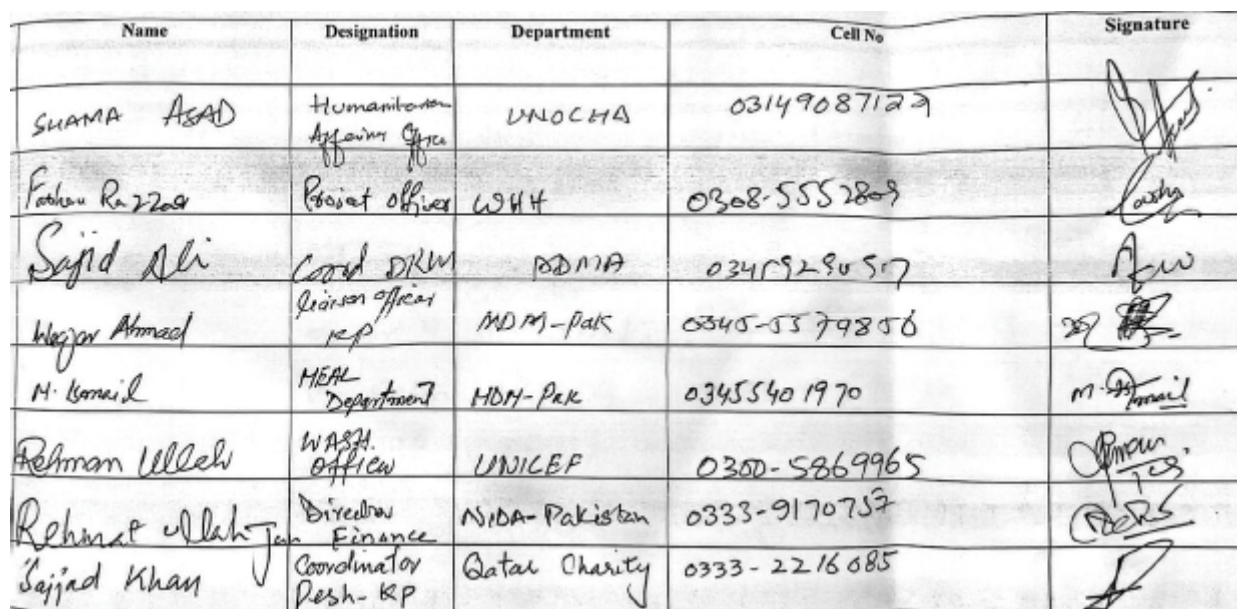 Name Designation Department Cell No Signature
SHAMA ASAD Humanitarian Affairs Office UNOCHA 03149087122
Project Officer WHH 0308-5552809
Sajid Ali Cord DRM PDMA
Waqar Ahmad Liaison Officer KP MDM-Pak 0345-5579856
M. Ismail MEAL Department MDM-Pak 03455401970 M. Ismail
Rehman Ullah WASH. Officer UNICEF 0300-5869965
Rehmat Ullah Jan Director Finance NIDA-Pakistan 0333-9170737
Sajjad Khan Coordinator Pesh-KP Qatar Charity 0333-2216085